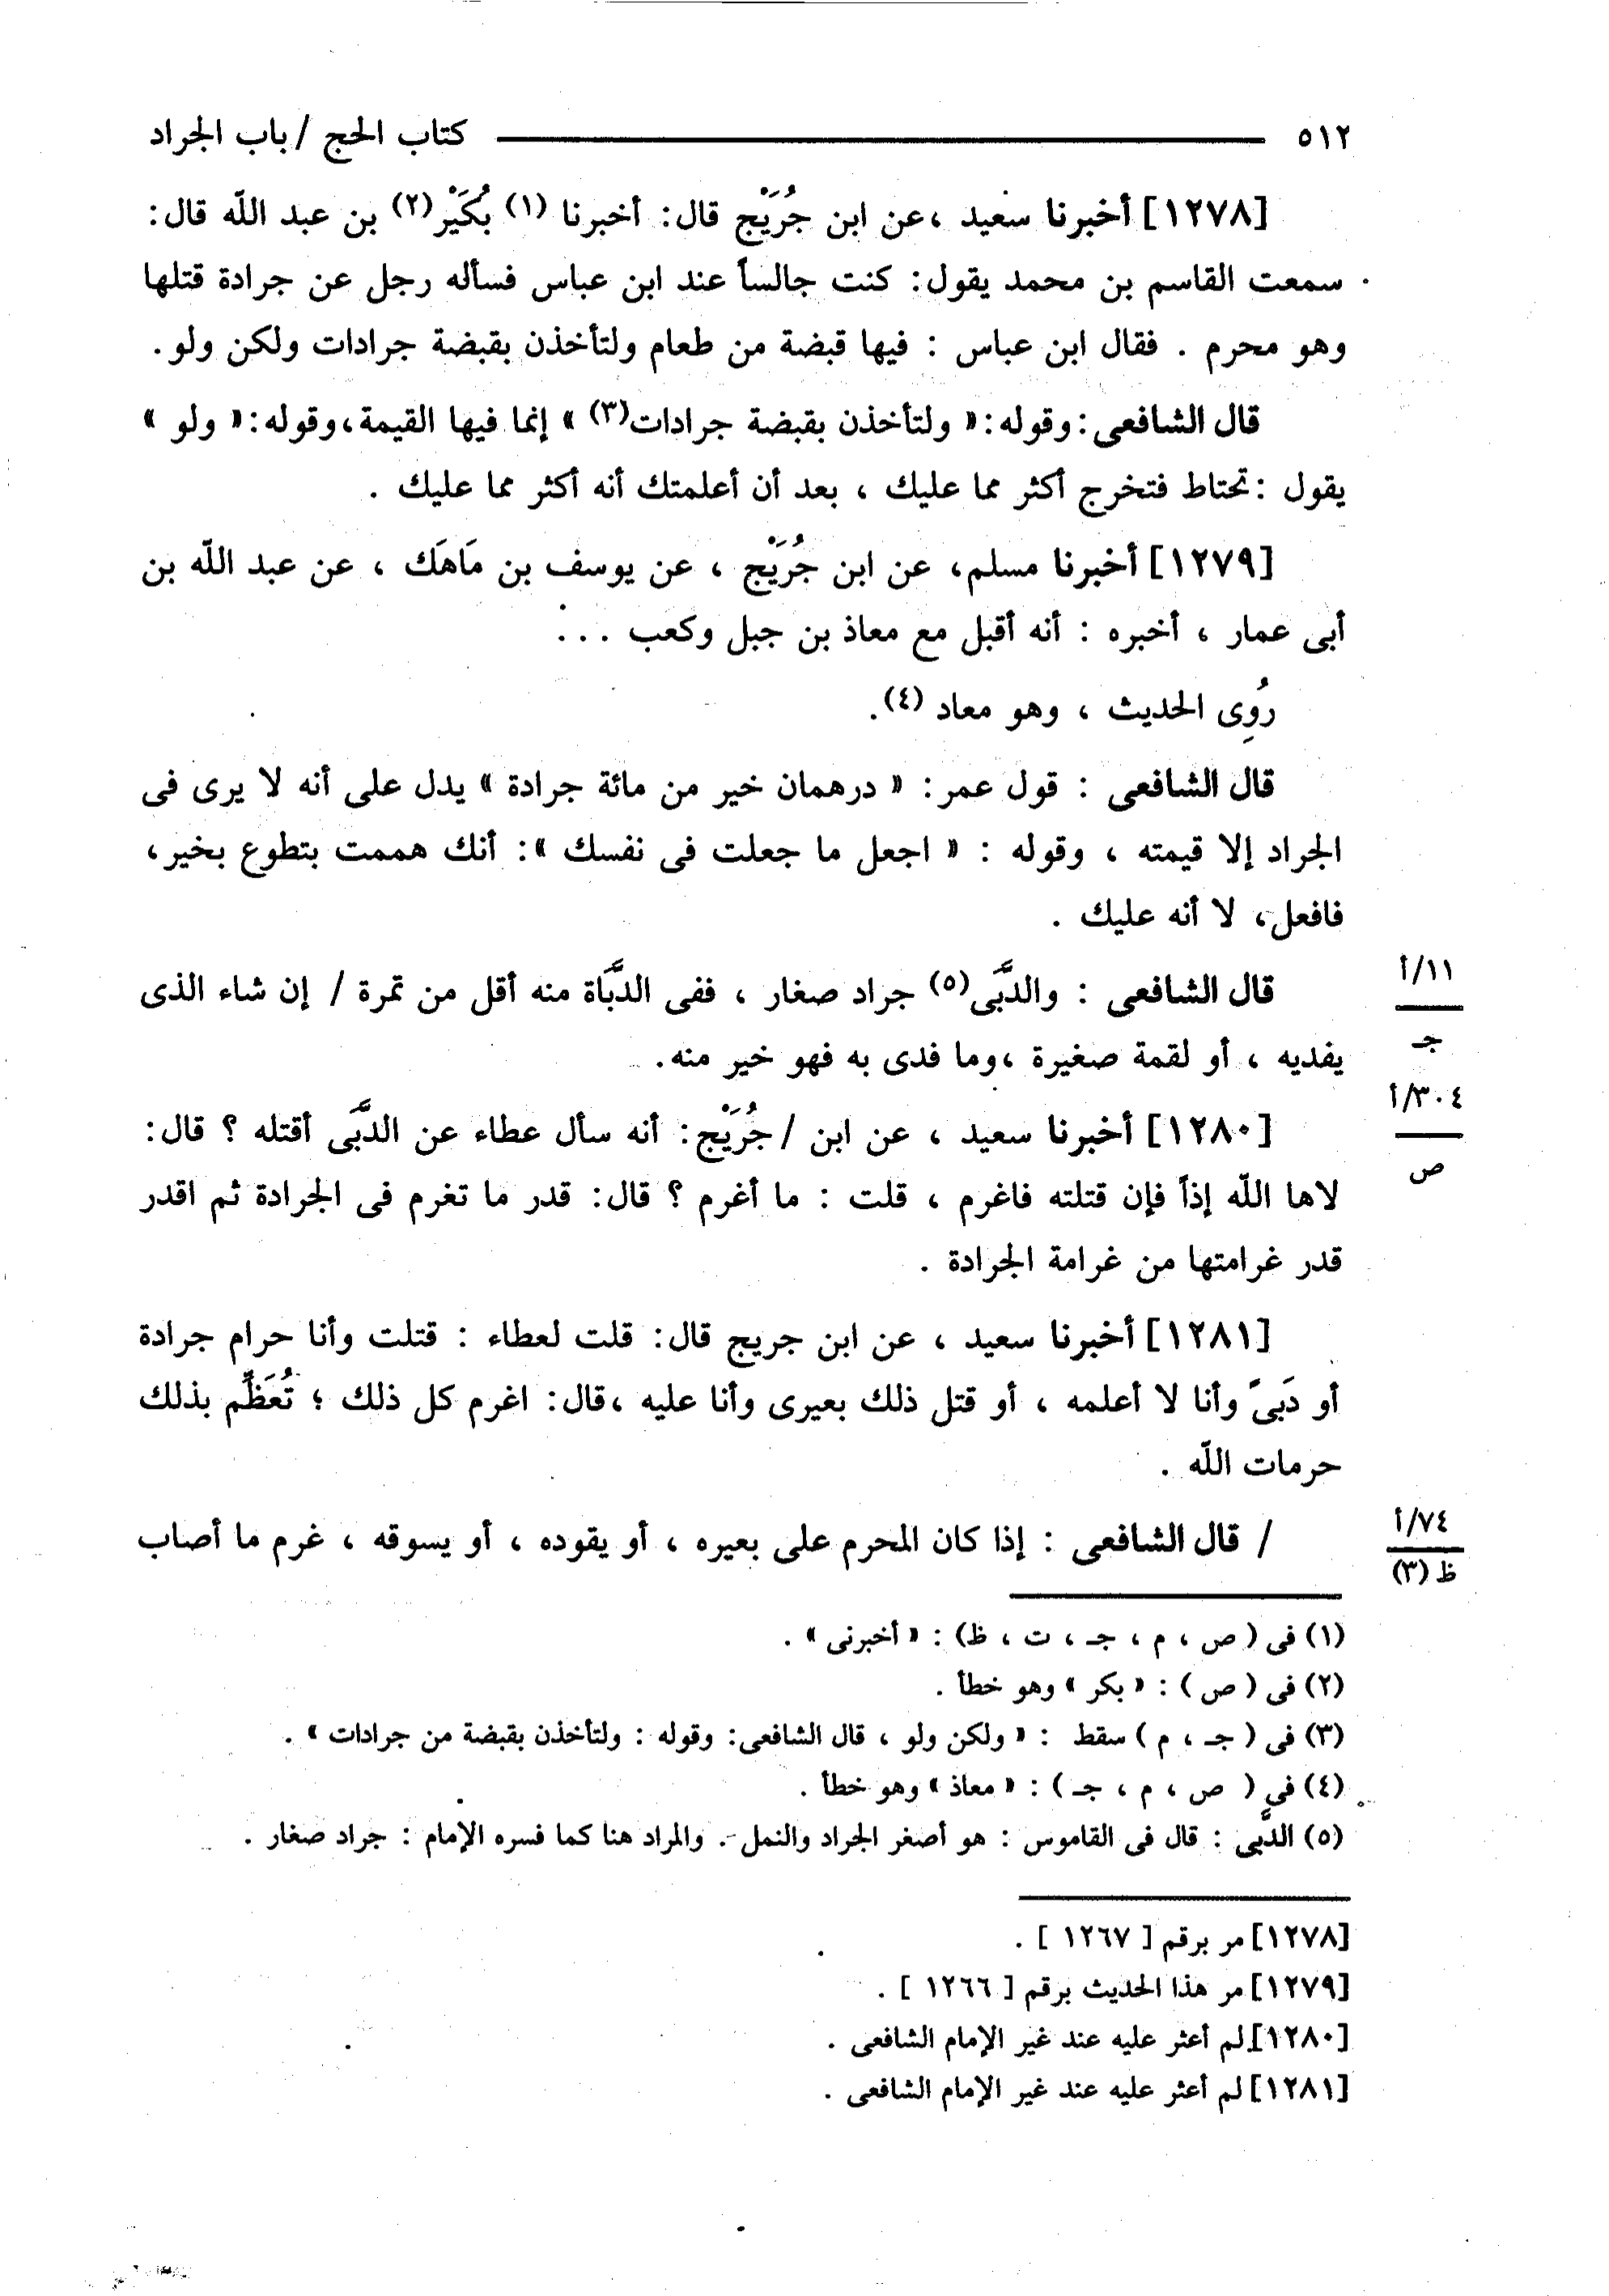 ٥١٢ ــــــــــــــــــ كتاب الحج / باب الجراد
[١٢٧٨] أخبرنا سعيد ، عن ابن جُرَيْج قال: أخبرنا (١) بُكَيْر(٢) بن عبد الله قال:
سمعت القاسم بن محمد يقول: كنت جالساً عند ابن عباس فسأله رجل عن جرادة قتلها
وهو محرم . فقال ابن عباس : فيها قبضة من طعام ولتأخذن بقبضة جرادات ولكن ولو.
قال الشافعى: وقوله: « ولتأخذن بقبضة جرادات(٣) » إنما فيها القيمة، وقوله: « ولو »
يقول : تحتاط فتخرج أكثر مما عليك ، بعد أن أعلمتك أنه أكثر مما عليك .
[١٢٧٩] أخبرنا مسلم، عن ابن جُرَيْج ، عن يوسف بن مَاهَك ، عن عبد الله بن
أبى عمار ، أخبره : أنه أقبل مع معاذ بن جبل وكعب . . .
رُوِى الحديث ، وهو معاد (٤).
قال الشافعى : قول عمر: « درهمان خير من مائة جرادة » يدل على أنه لا يرى فى
الجراد إلا قيمته ، وقوله : « اجعل ما جعلت فى نفسك »: أنك هممت بتطوع بخير،
فافعل، لا أنه عليك .
١١/أ
قال الشافعى : والدَّبَى(٥) جراد صغار ، ففى الدَّبَاة منه أقل من تمرة / إن شاء الذى
جـ
يفديه ، أو لقمة صغيرة ، وما فدى به فهو خير منه.
٣٠٤/أ
[١٢٨٠] أخبرنا سعيد ، عن ابن / جُرَيْج: أنه سأل عطاء عن الدَّبَى أقتله ؟ قال:
ص
لاها الله إذاً فإن قتلته فاغرم ، قلت : ما أغرم ؟ قال: قدر ما تغرم فى الجرادة ثم اقدر
قدر غرامتها من غرامة الجرادة .
[١٢٨١] أخبرنا سعيد ، عن ابن جريج قال: قلت لعطاء : قتلت وأنا حرام جرادة
أو دَبىً وأنا لا أعلمه ، أو قتل ذلك بعيرى وأنا عليه ، قال: اغرم كل ذلك ؛ تُعَظِّم بذلك
حرمات الله .
٧٤/أ
/ قال الشافعى : إذا كان المحرم على بعيره ، أو يقوده ، أو يسوقه ، غرم ما أصاب
ظ (٣)
(١) فى ( ص ، م ، جـ ، ت ، ظ) : « أخبرنى » .
(٢) فى ( ص ) : « بكر » وهو خطأ .
(٣) فى ( جـ ، م ) سقط : « ولكن ولو ، قال الشافعى: وقوله : ولتأخذن بقبضة من جرادات » .
(٤) فى ( ص ، م ، جـ ) : « معاذ » وهو خطأ .
(٥) الدَّبى : قال فى القاموس : هو أصغر الجراد والنمل . والمراد هنا كما فسره الإمام : جراد صغار .
[١٢٧٨] مر برقم [ ١٢٦٧ ] .
[١٢٧٩] مر هذا الحديث برقم [ ١٢٦٦ ] .
[١٢٨٠] لم أعثر عليه عند غير الإمام الشافعى .
[١٢٨١] لم أعثر عليه عند غير الإمام الشافعى .